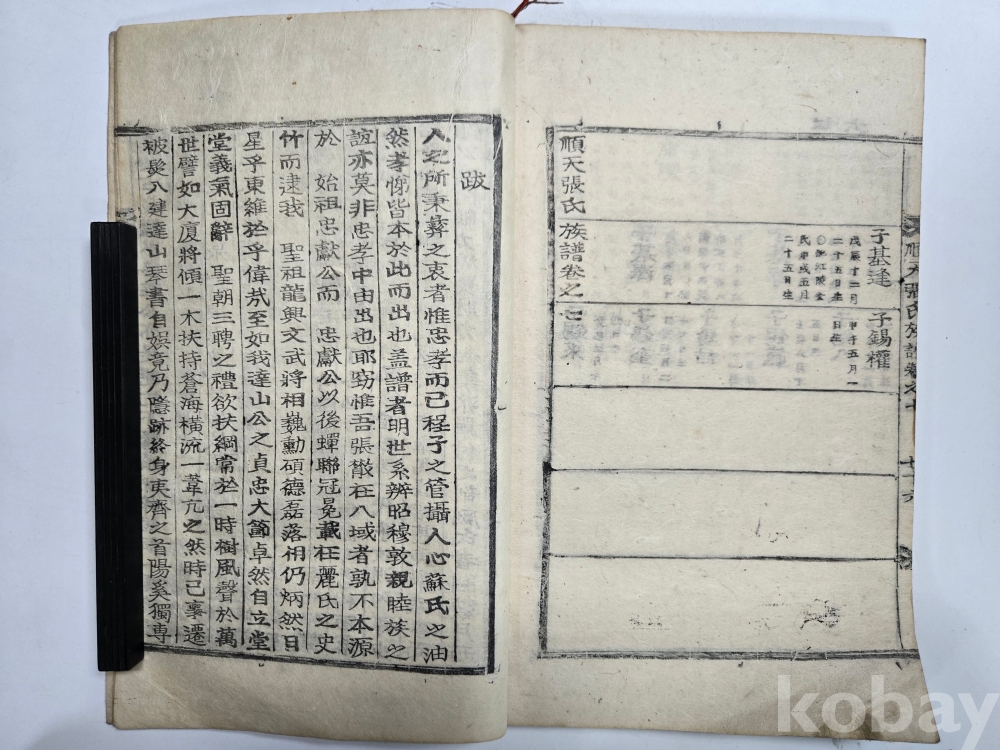 順天張氏族譜卷之七 七十六
子基逢
戊辰十二月
二十五日生
〇江陵金
氏庚戌五月
二十五日生
子錫權
甲午五月一
日生
順天張氏族譜卷之七
跋
人之所秉彛之衷者惟忠孝而已程子之管攝人心蘇氏之油
然孝悌皆本於此而出也盖譜者明世系辨昭穆敦親睦族之
誼亦莫非忠孝中由出也耶窃惟吾張散在八域者孰不本源
於 始祖忠獻公而 忠獻公以後蟬聯冠冕載在麗氏之史
竹而逮我 聖祖龍興文武將相巍勳碩德磊落相仍炳然日
星乎東維於乎偉㦲至如我達山公之貞忠大節卓然自立堂
堂義氣固辭 聖朝三聘之禮欲扶綱常於一時樹風聲於萬
世譬如大廈將傾一木扶持蒼海橫流一葦亢之然時已事遷
被髮入建達山琴書自娛竟乃隱跡終身夷齊之首陽奚獨専
kobay